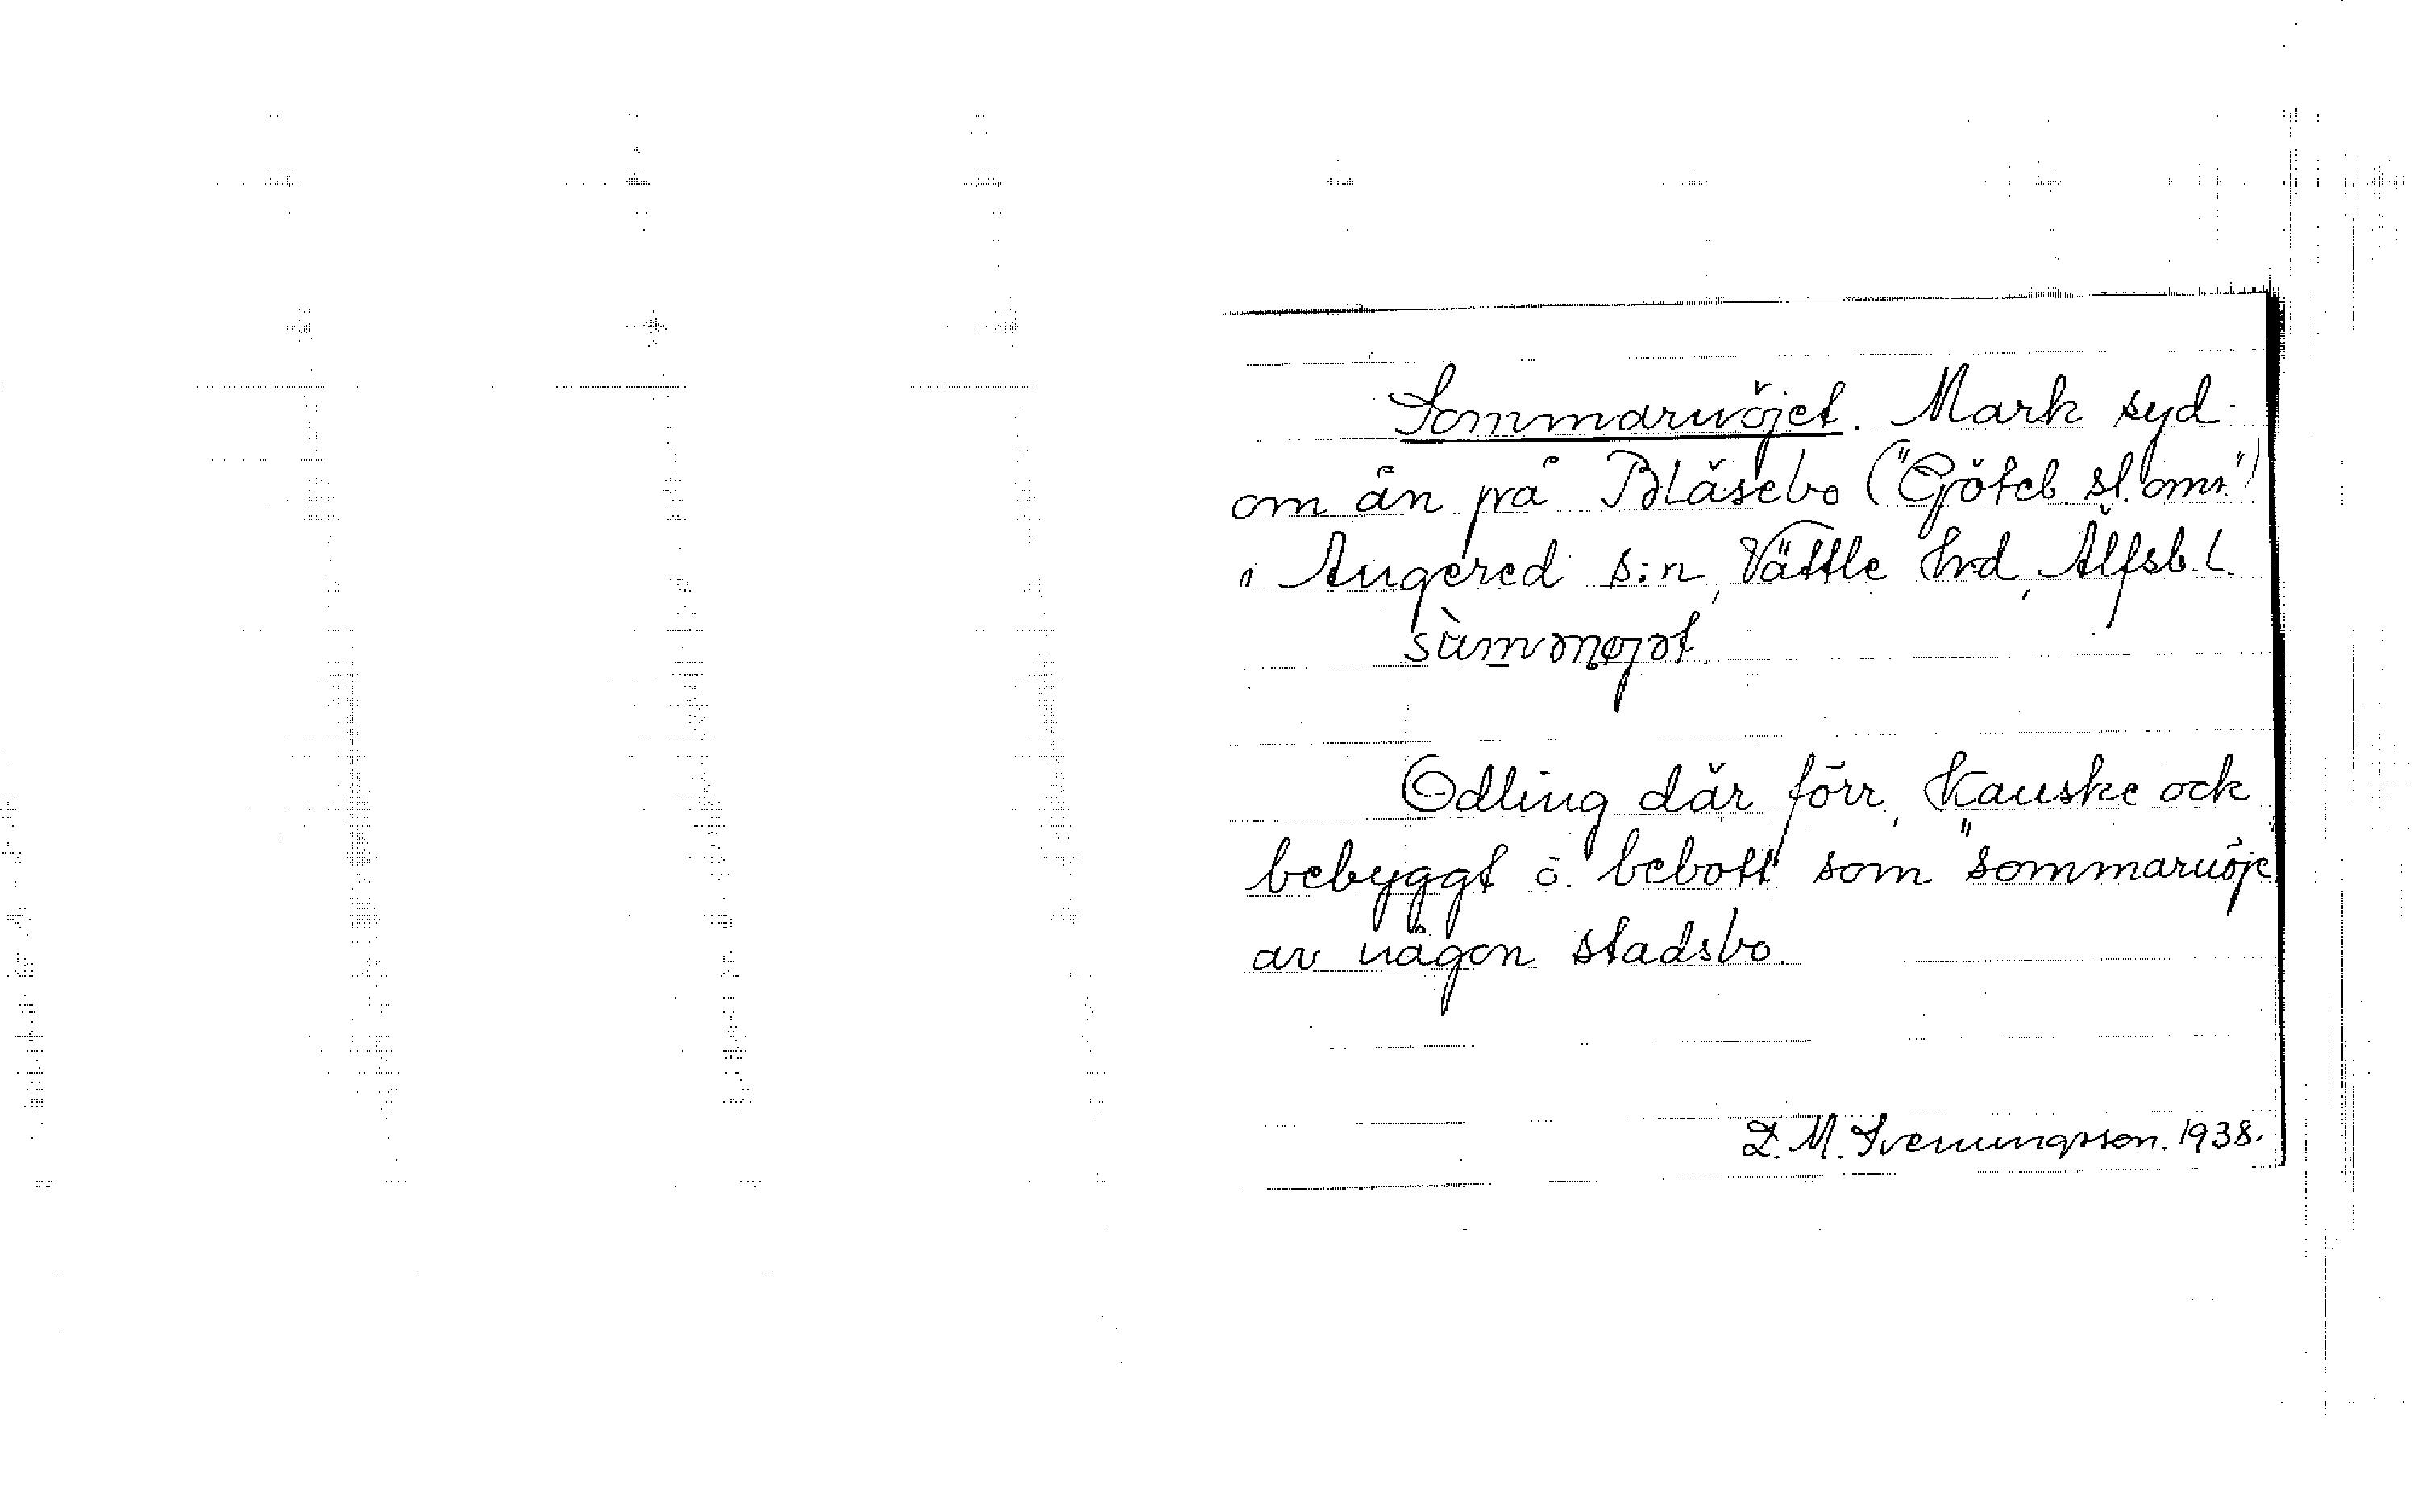 Sommarnöjet. Mark syd
om ån på Blåsebo ("Göteb. sl. omr.")
i Angered s:n, Vättle hrd, Älfsb l.
sùmənøjət.
Odling där förr, kanske ock
bebyggt o. bebott som "sommarnöje"
av någon stadsbo.
D. M. Svenungsson. 1938.